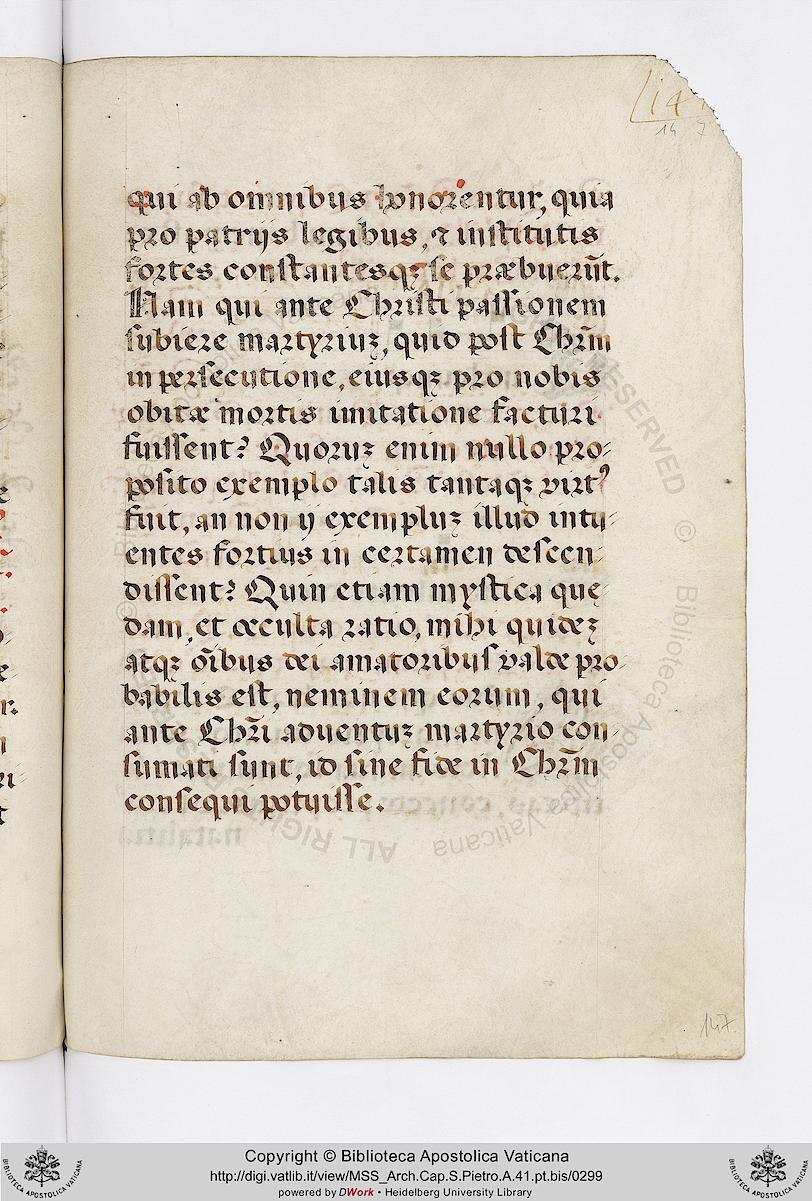 qui ab omnibus honorentur, quia
pro patrijs legibus, ⁊ institutis
fortes constantesqꝫ se præbuerūt.
Nam qui ante Christi passionem
subiere martyriuꝫ, quid post Chrm̄
in persecutione, eiusqꝫ pro nobis
obitæ mortis imitatione facturi
fuissent? Quoruꝫ enim nullo pro-
posito exemplo talis tantaqꝫ virtꝰ
fuit, an non ij exempluꝫ illud intu-
entes fortius in certamen descen-
dissent? Quin etiam mystica quę-
dam, et occulta ratio, mihi quideꝫ
atqꝫ oībus dei amatoribus valde pro-
babilis est, neminem eorum, qui
ante Chrī aduentuꝫ martyrio con-
sumati sunt, id sine fide in Chrm̄
consequi potuisse.
147
147
BIBLIOTECA APOSTOLICA VATICANA
Copyright © Biblioteca Apostolica Vaticana
http://digi.vatlib.it/view/MSS_Arch.Cap.S.Pietro.A.41.pt.bis/0299
powered by DWork • Heidelberg University Library
BIBLIOTECA APOSTOLICA VATICANA